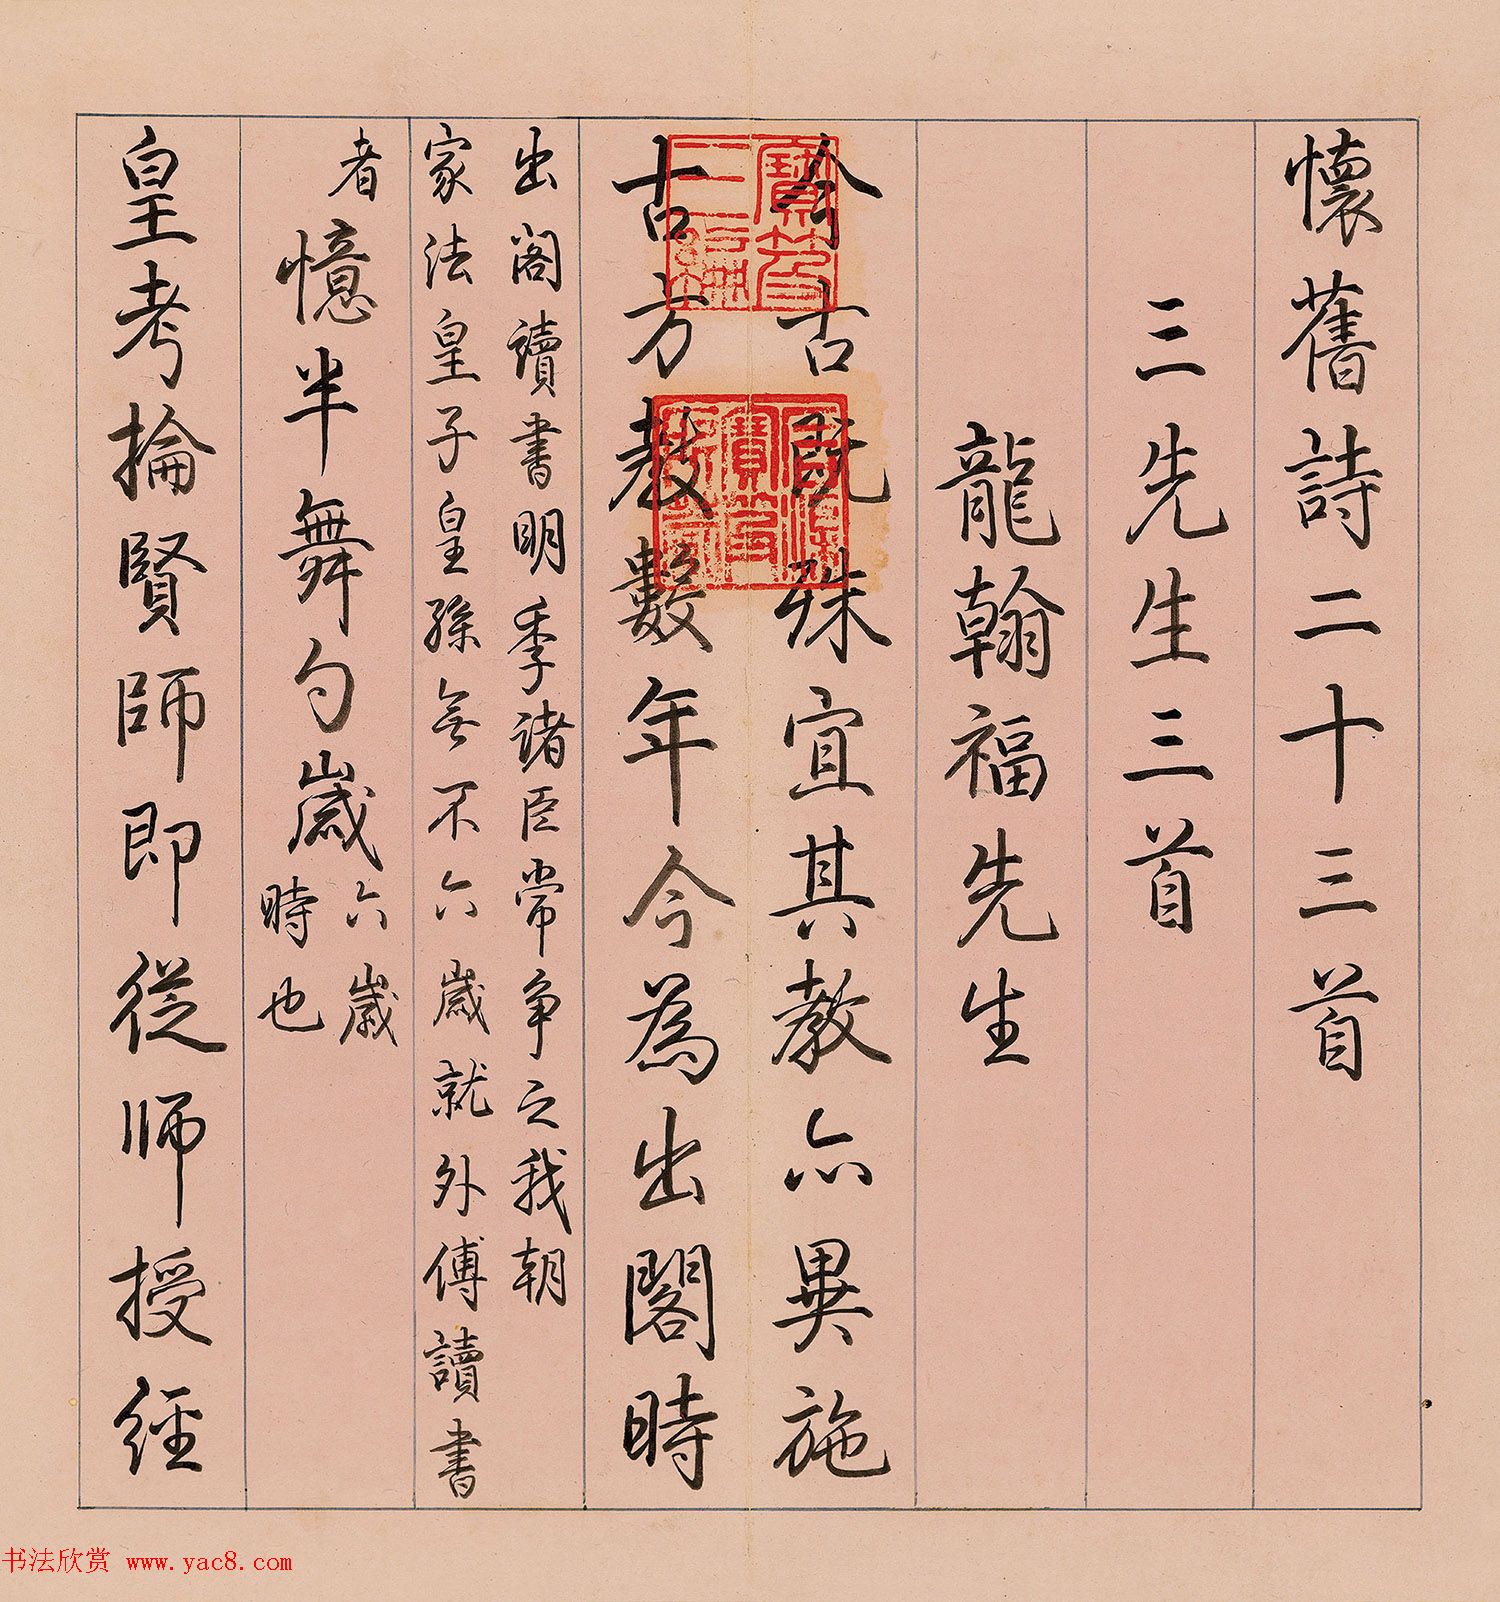 懷舊詩二十三首
三先生三首
龍翰福先生
今古既殊宜其教亦異施
古方教數年今為出閣時
出閣讀書明季諸臣常争之我朝
家法皇子皇孫無不六歲就外傅讀書
者
憶半舞勺歲
六歲
時也
皇考掄賢師即從師授經
寶笈三編
书法欣赏 www.yac8.com